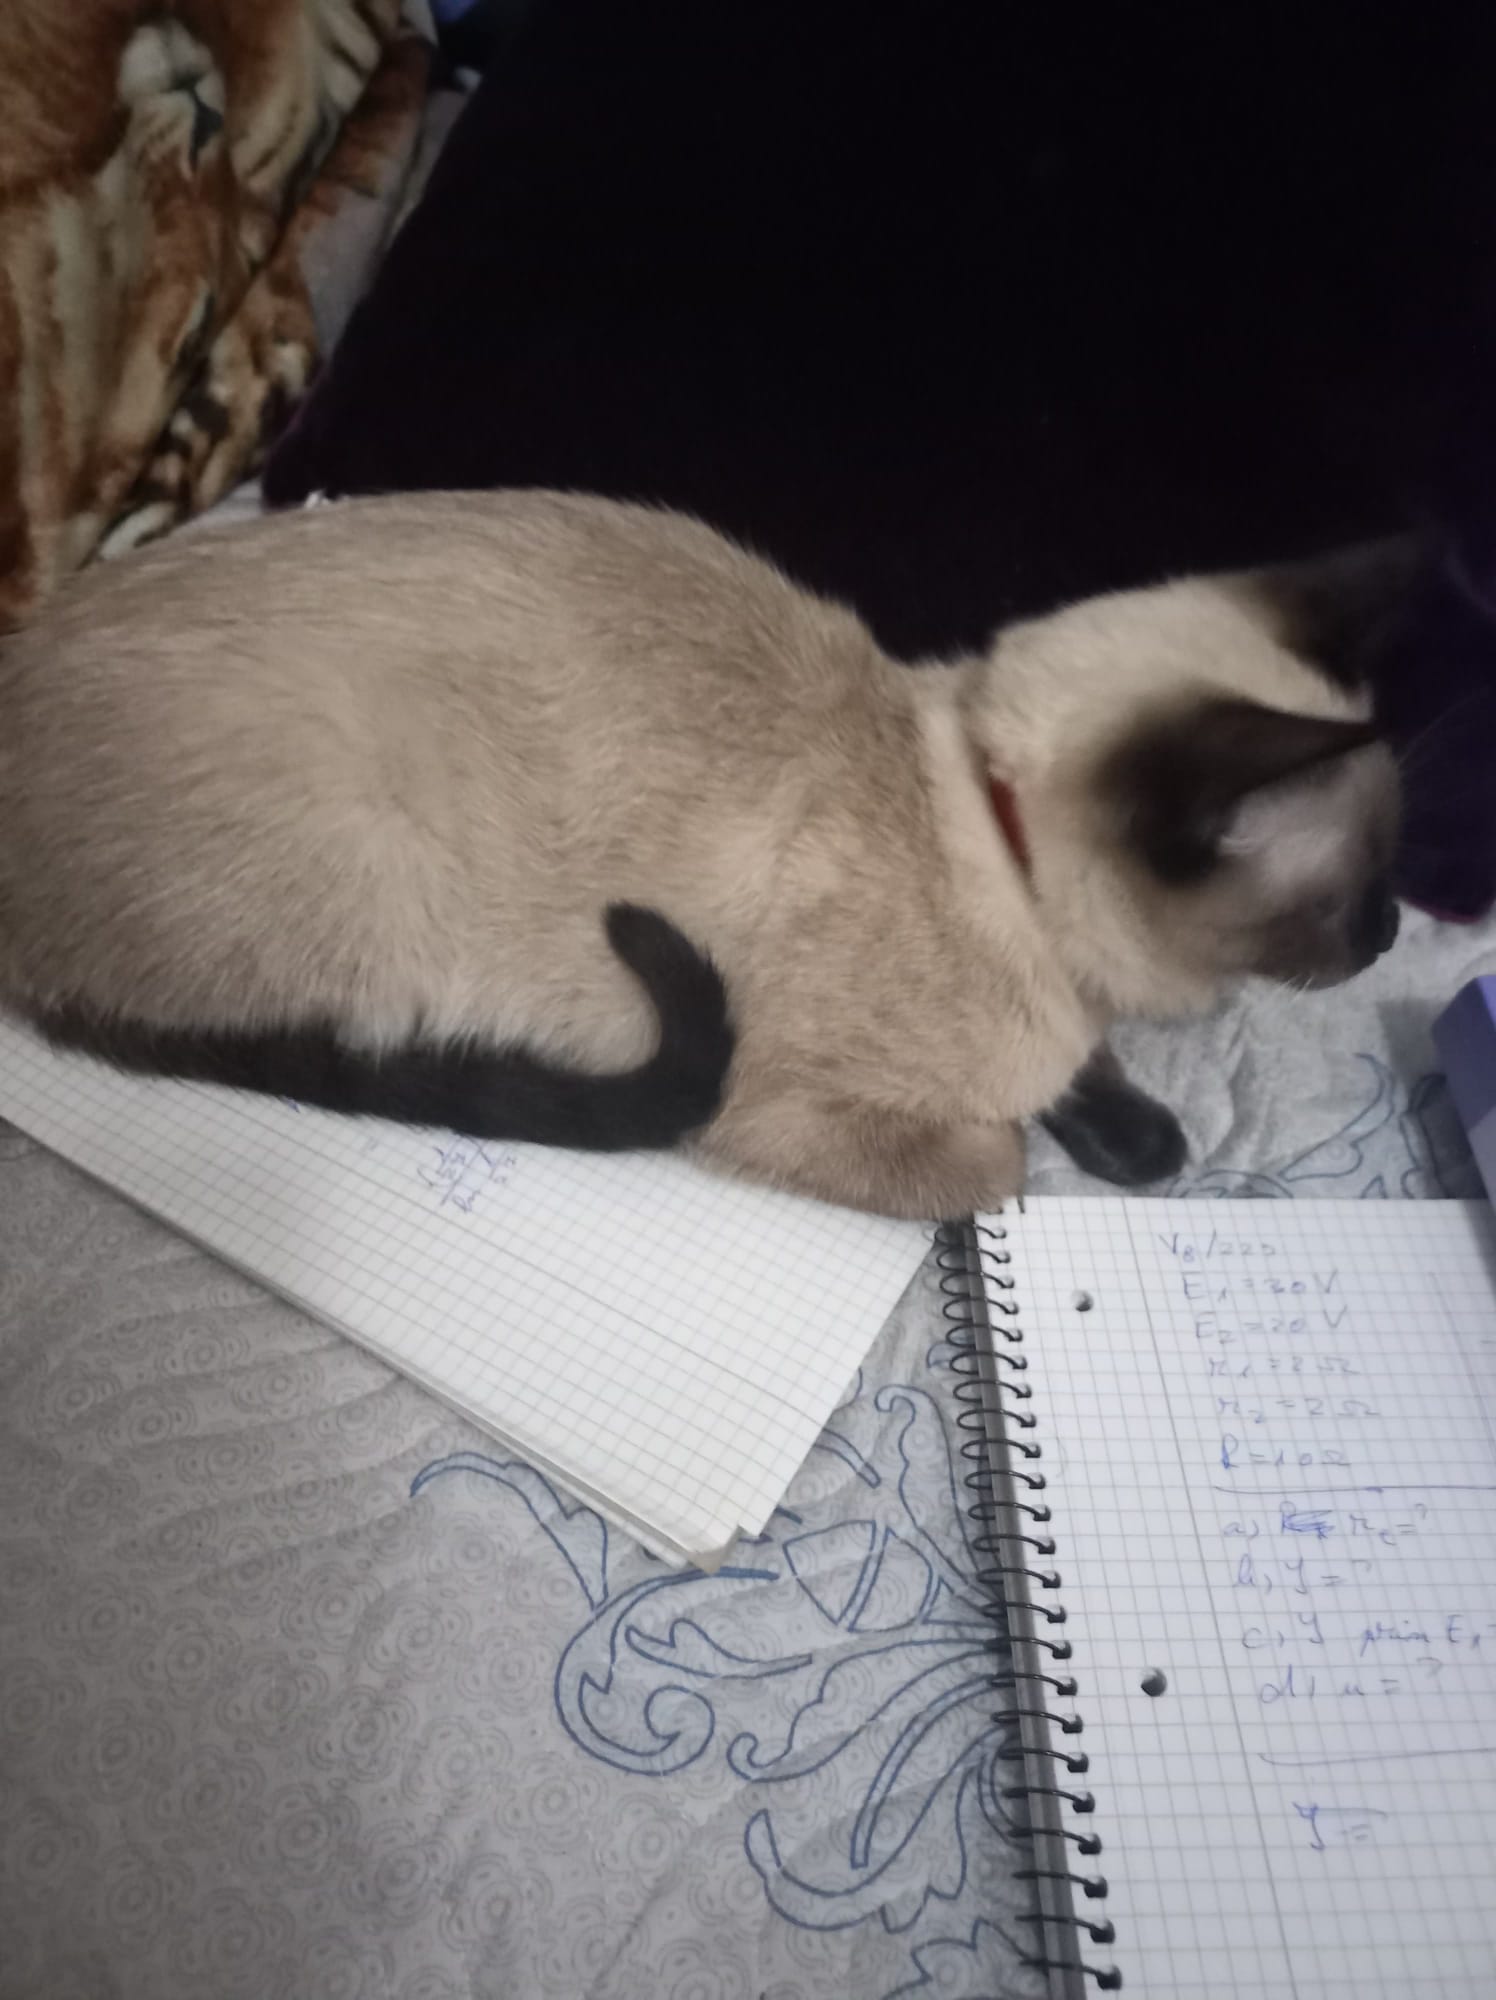 E₁=30V
E₂=20V
r₁=2Ω
r₂=2Ω
R=10Ω
a) rₑ=?
b) I=?
c) I prin E₁
d) u=?
I=